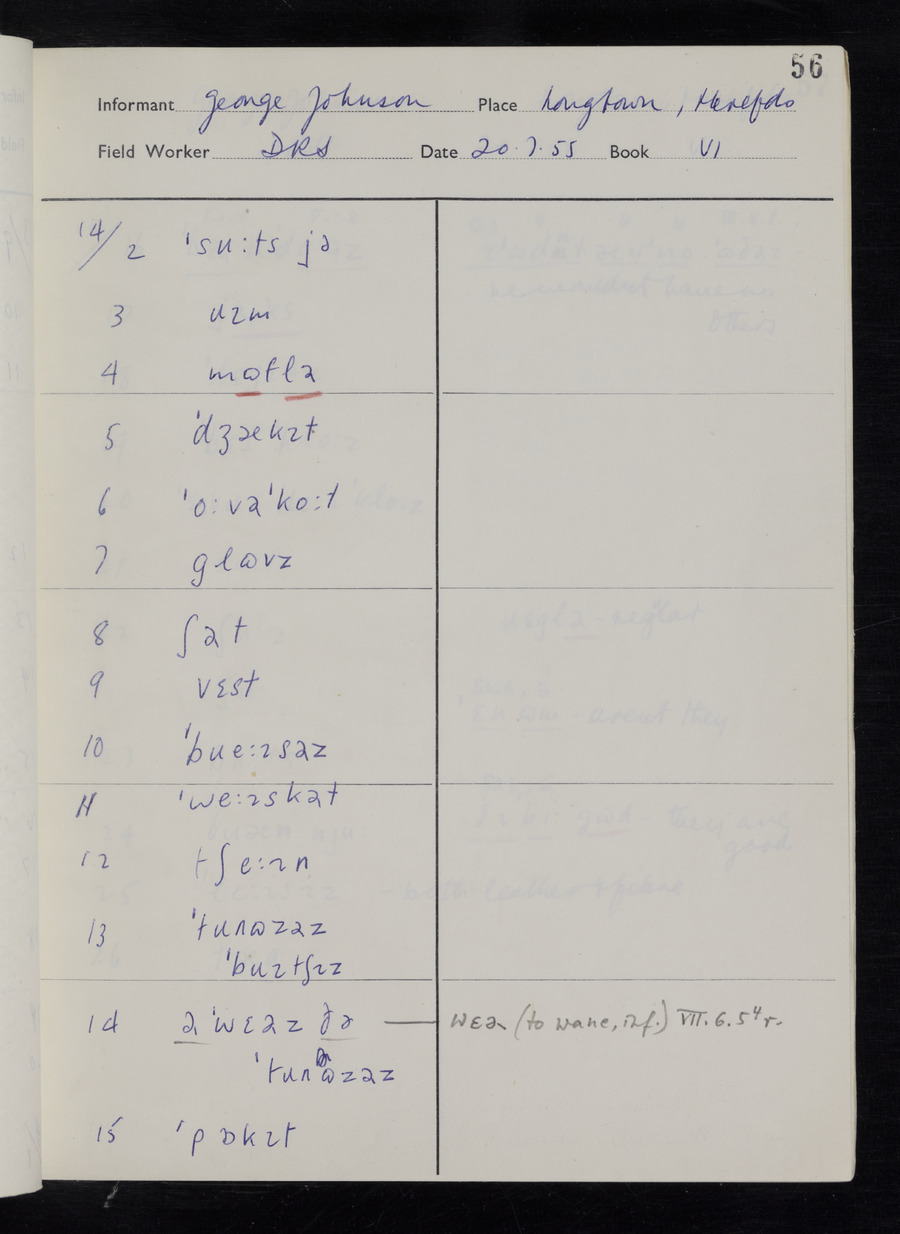 56
Informant George Johnson Place Longtown, Herefds
Field Worker DRS Date 20.7.55 Book VI
14/2 ˈsuːts jə
3 ɑɪm
4 mɷflə
5 ˈdʒækɪt
6 ˈoːvəˈkoːt
7 glɷvz
8 ʃət
9 vɛst
10
11 ˈweːɪskət
12 tʃeːɪn
13
14 ə ˈwɛəz ðə — wɛə (to wane, inf.) VII.6.5⁴ r.
15 ˈpɒkɪt